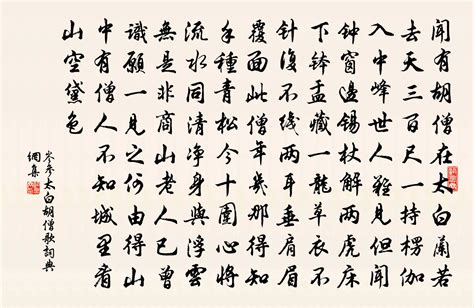 聞有胡僧在太白蘭若
去天三百尺一持楞伽
入中峰世人難見但聞
鐘窗邊錫杖解兩虎床
下鉢盂藏一龍草衣不
針復不線兩耳垂肩眉
覆面此僧年幾那得知
手種青松今十圍心將
流水同清淨身與浮雲
無是非商山老人已曾
識願一見之何由得山
中有僧人不知城里看
山空黛色
岑參太白胡僧歌詞典
網集